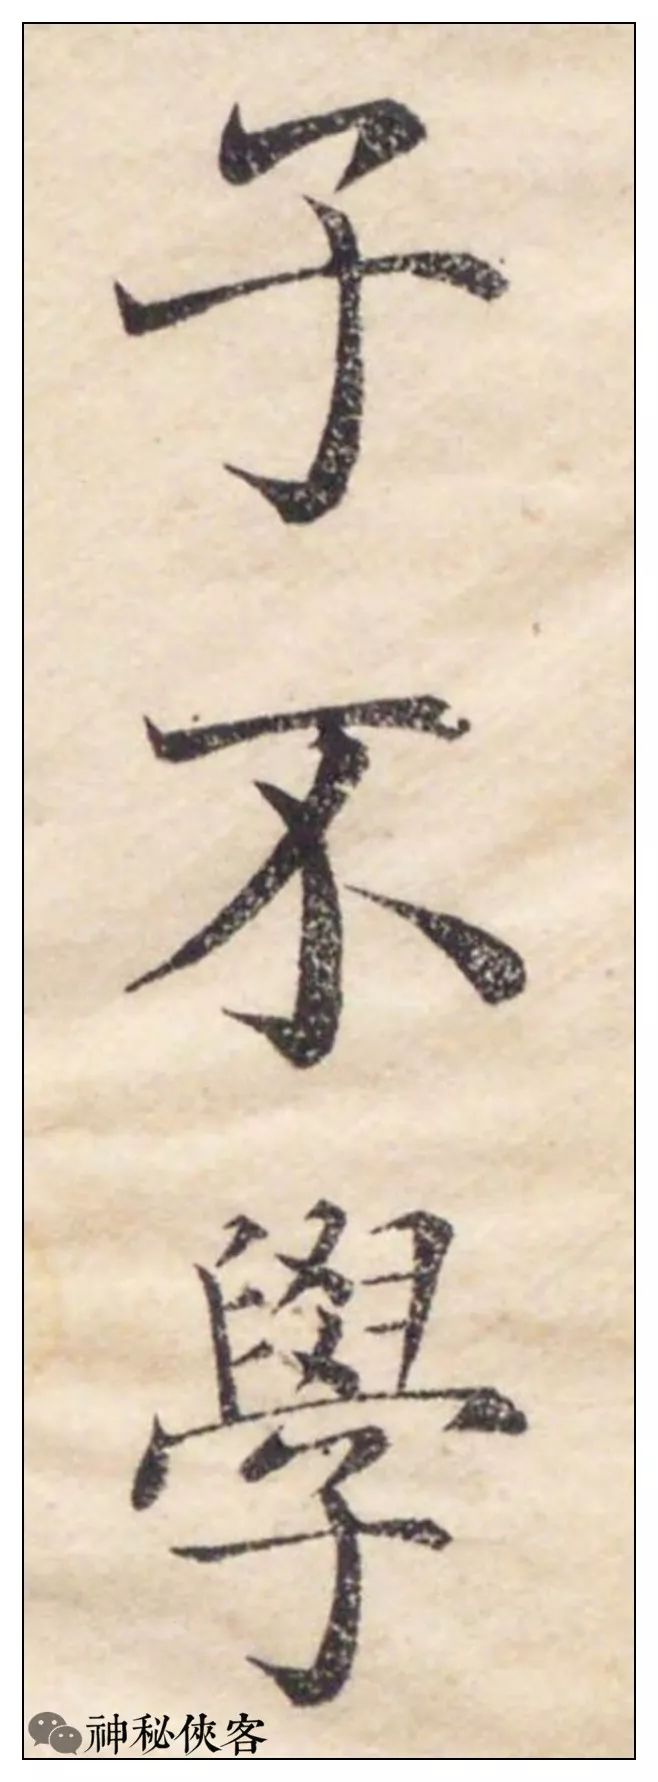 子不學
神秘俠客